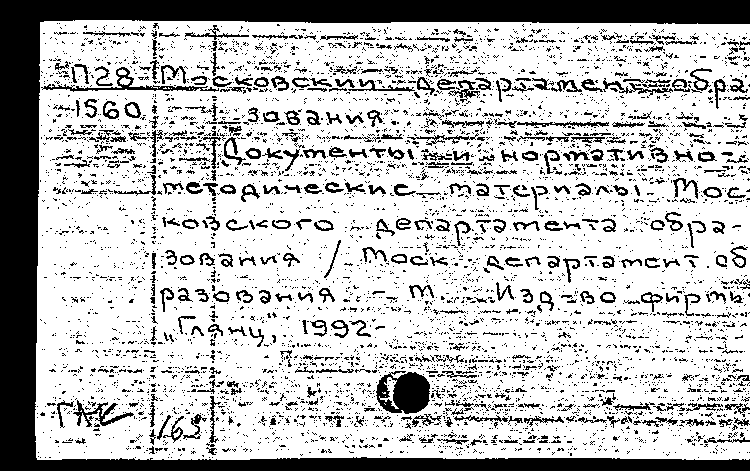 П28 Московский департамент обра
1560 зования.
Документы и нормативно-
методические материалы Мос-
ковского департамента обра-
зования / Моск. департамент об
разования. - М. Изд-во фирмы
„Глянц", 1992-
ГАК 163